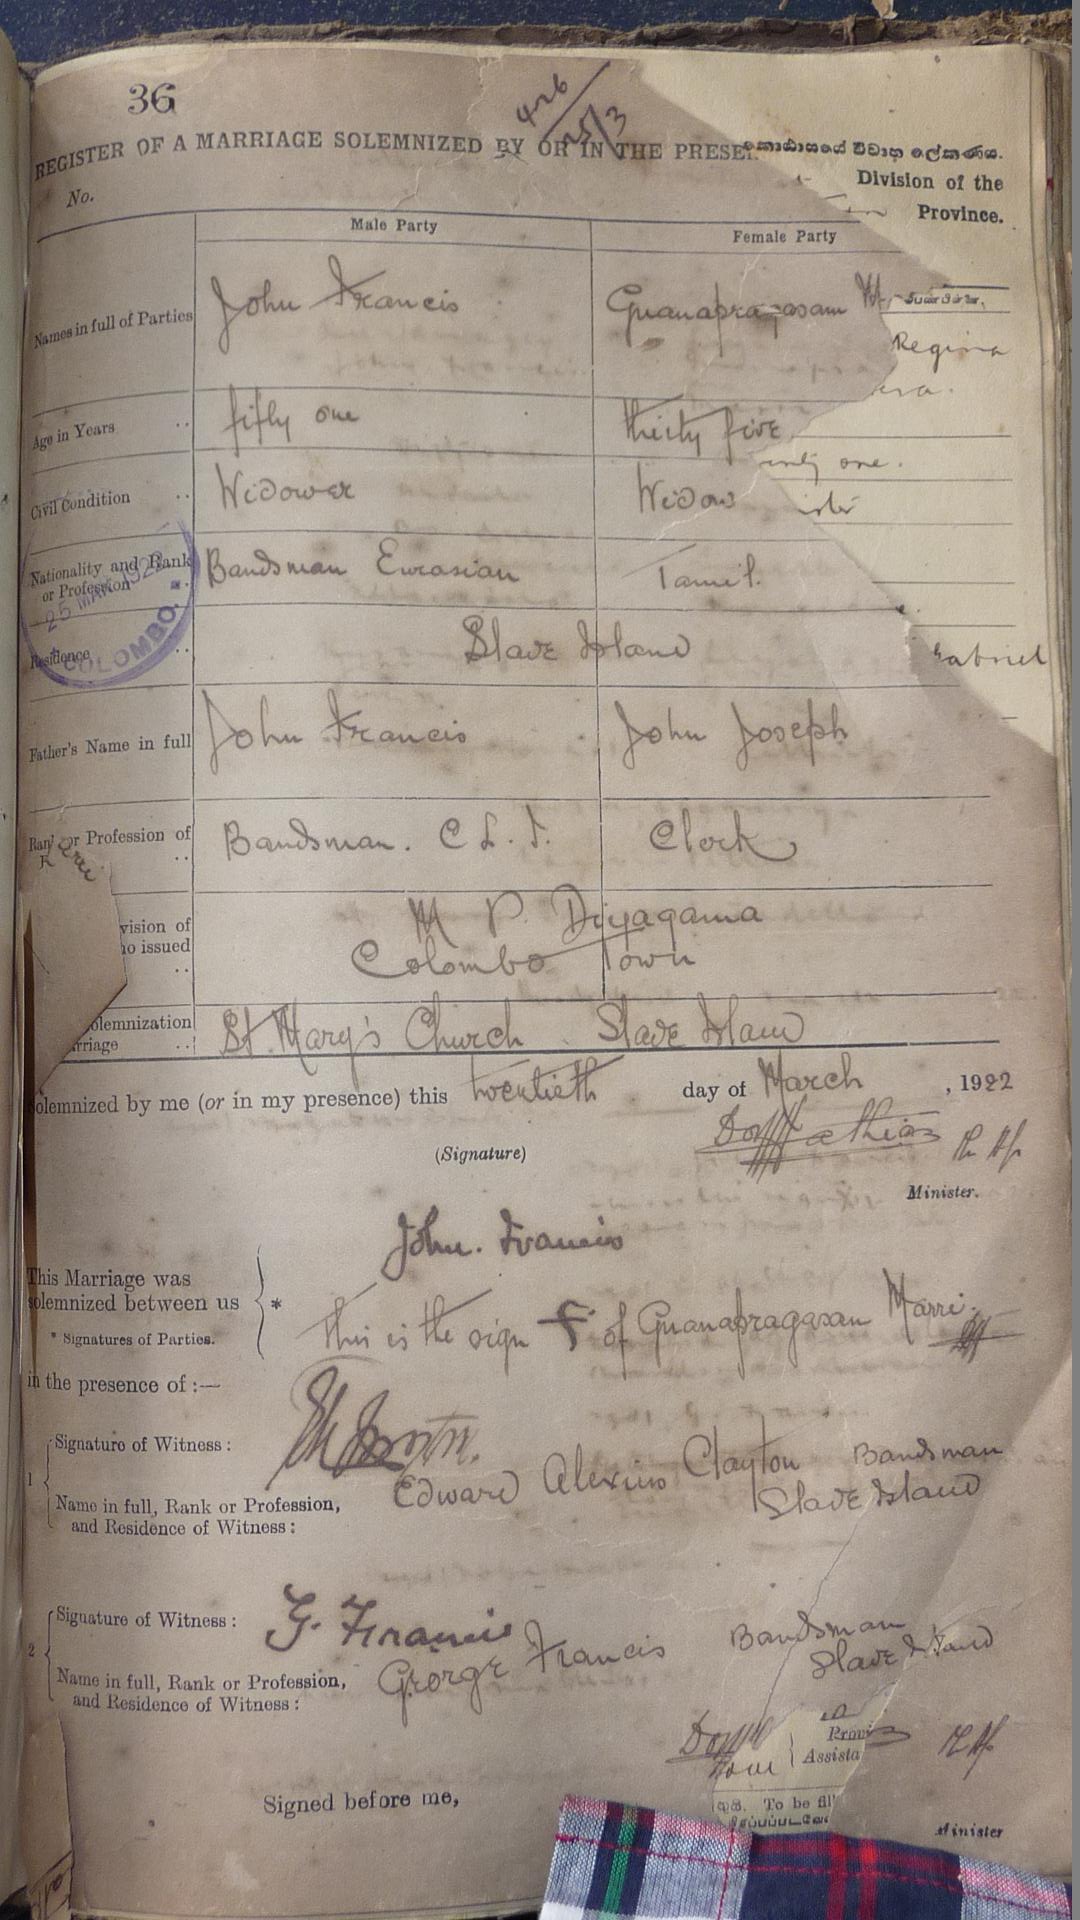 36
426/25/3
REGISTER OF A MARRIAGE SOLEMNIZED BY OR IN THE PRESE
No.
Division of the
Province.
Male Party
Female Party
Names in full of Parties
John Francis
Gnanapragasam M
Regina
Age in Years ..
fifty one
thirty five
one.
Civil Condition ..
Widower
Widow
Nationality and Rank or Profession ..
Bandsman Eurasian
Tamil.
25 MAR 1922
COLOMBO.
Residence ..
Slave Island
Gabriel
Father's Name in full
John Francis
John Joseph
Rank or Profession of
Bandsman. C L I.
Clerk
vision of
ho issued
..
M P. Diyagama
Colombo Town
olemnization
rriage ..
St. Mary's Church. Slave Island
Solemnized by me (or in my presence) this twentieth day of March, 1922
(Signature)
Minister.
This Marriage was
solemnized between us
* Signatures of Parties.
*
John. Francis
This is the sign of Gnanapragasam Marri.
in the presence of :—
1
Signature of Witness :
Name in full, Rank or Profession,
and Residence of Witness :
Edward Alexius Clayton Bandsman
Slave Island
2
Signature of Witness :
G. Francis
Name in full, Rank or Profession,
and Residence of Witness :
George Francis Bandsman
Slave Island
Provi
Assista
To be fil
Signed before me,
Minister